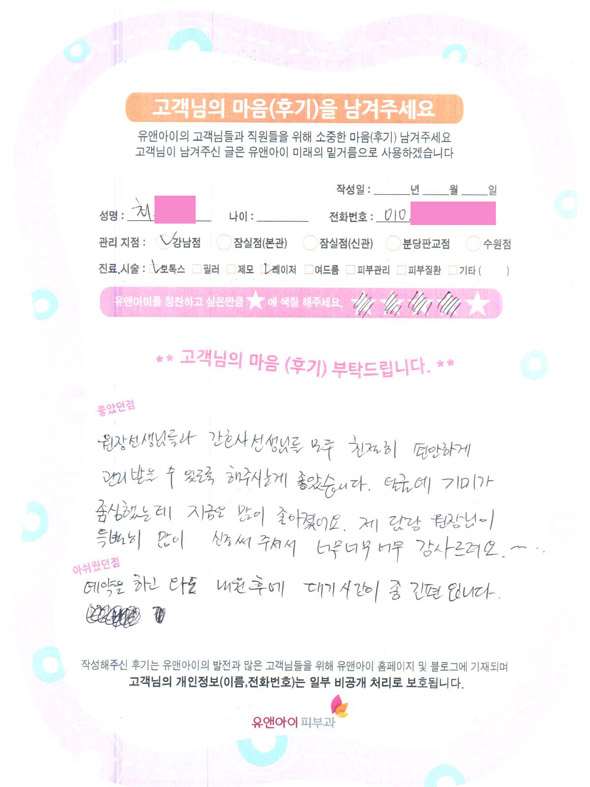 고객님의 마음(후기)을 남겨주세요
유앤아이의 고객님들과 직원들을 위해 소중한 마음(후기) 남겨주세요
고객님이 남겨주신 글은 유앤아이 미래의 밑거름으로 사용하겠습니다
작성일 : ______년 _____월 _____일
성명 : 최 나이 : 전화번호 : 010
관리 지점 : 강남점 잠실점(본관) 잠실점(신관) 분당판교점 수원점
진료,시술 : 보톡스 필러 제모 레이저 여드름 피부관리 피부질환 기타 ( )
유앤아이를 칭찬하고 싶은만큼 ★ 에 색칠 해주세요.
** 고객님의 마음 (후기) 부탁드립니다. **
좋았던점
원장선생님들과 간호사선생님들 모두 친절히 편안하게
관리받을 수 있도록 해주시는게 좋았습니다. 얼굴에 기미가
좀심했는데 지금은 많이 좋아졌어요. 제 담당 원장님이
특별히 많이 신경써 주셔서 너무너무너무 감사드려요.~~..
아쉬웠던점
예약을 하고 와도 내원후에 대기시간이 좀 긴편입니다.
작성해주신 후기는 유앤아이의 발전과 많은 고객님들을 위해 유앤아이 홈페이지 및 블로그에 기재되며
고객님의 개인정보(이름,전화번호)는 일부 비공개 처리로 보호됩니다.
유앤아이 피부과